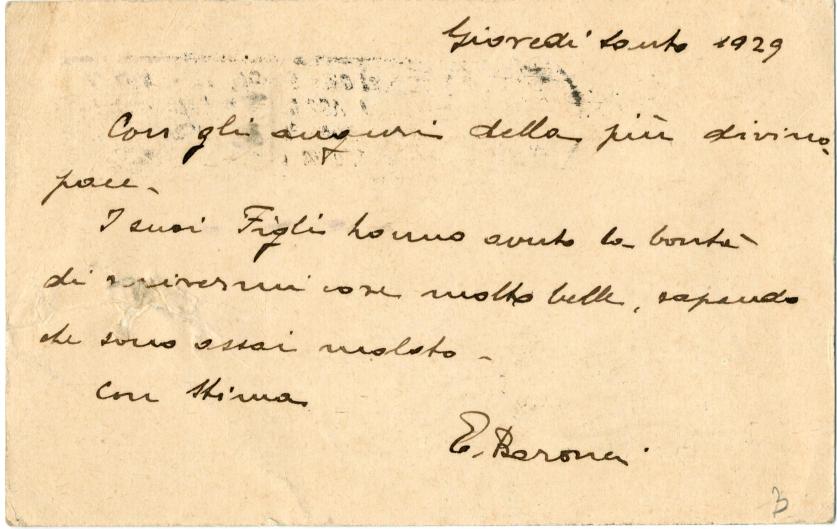 Giovedì santo 1929
Con gli auguri della più divina
pace.
I suoi Figli hanno avuto la bontà
di scrivermi cose molto belle, sapendo
che sono assai malato.
Con stima
E. Baroni
3